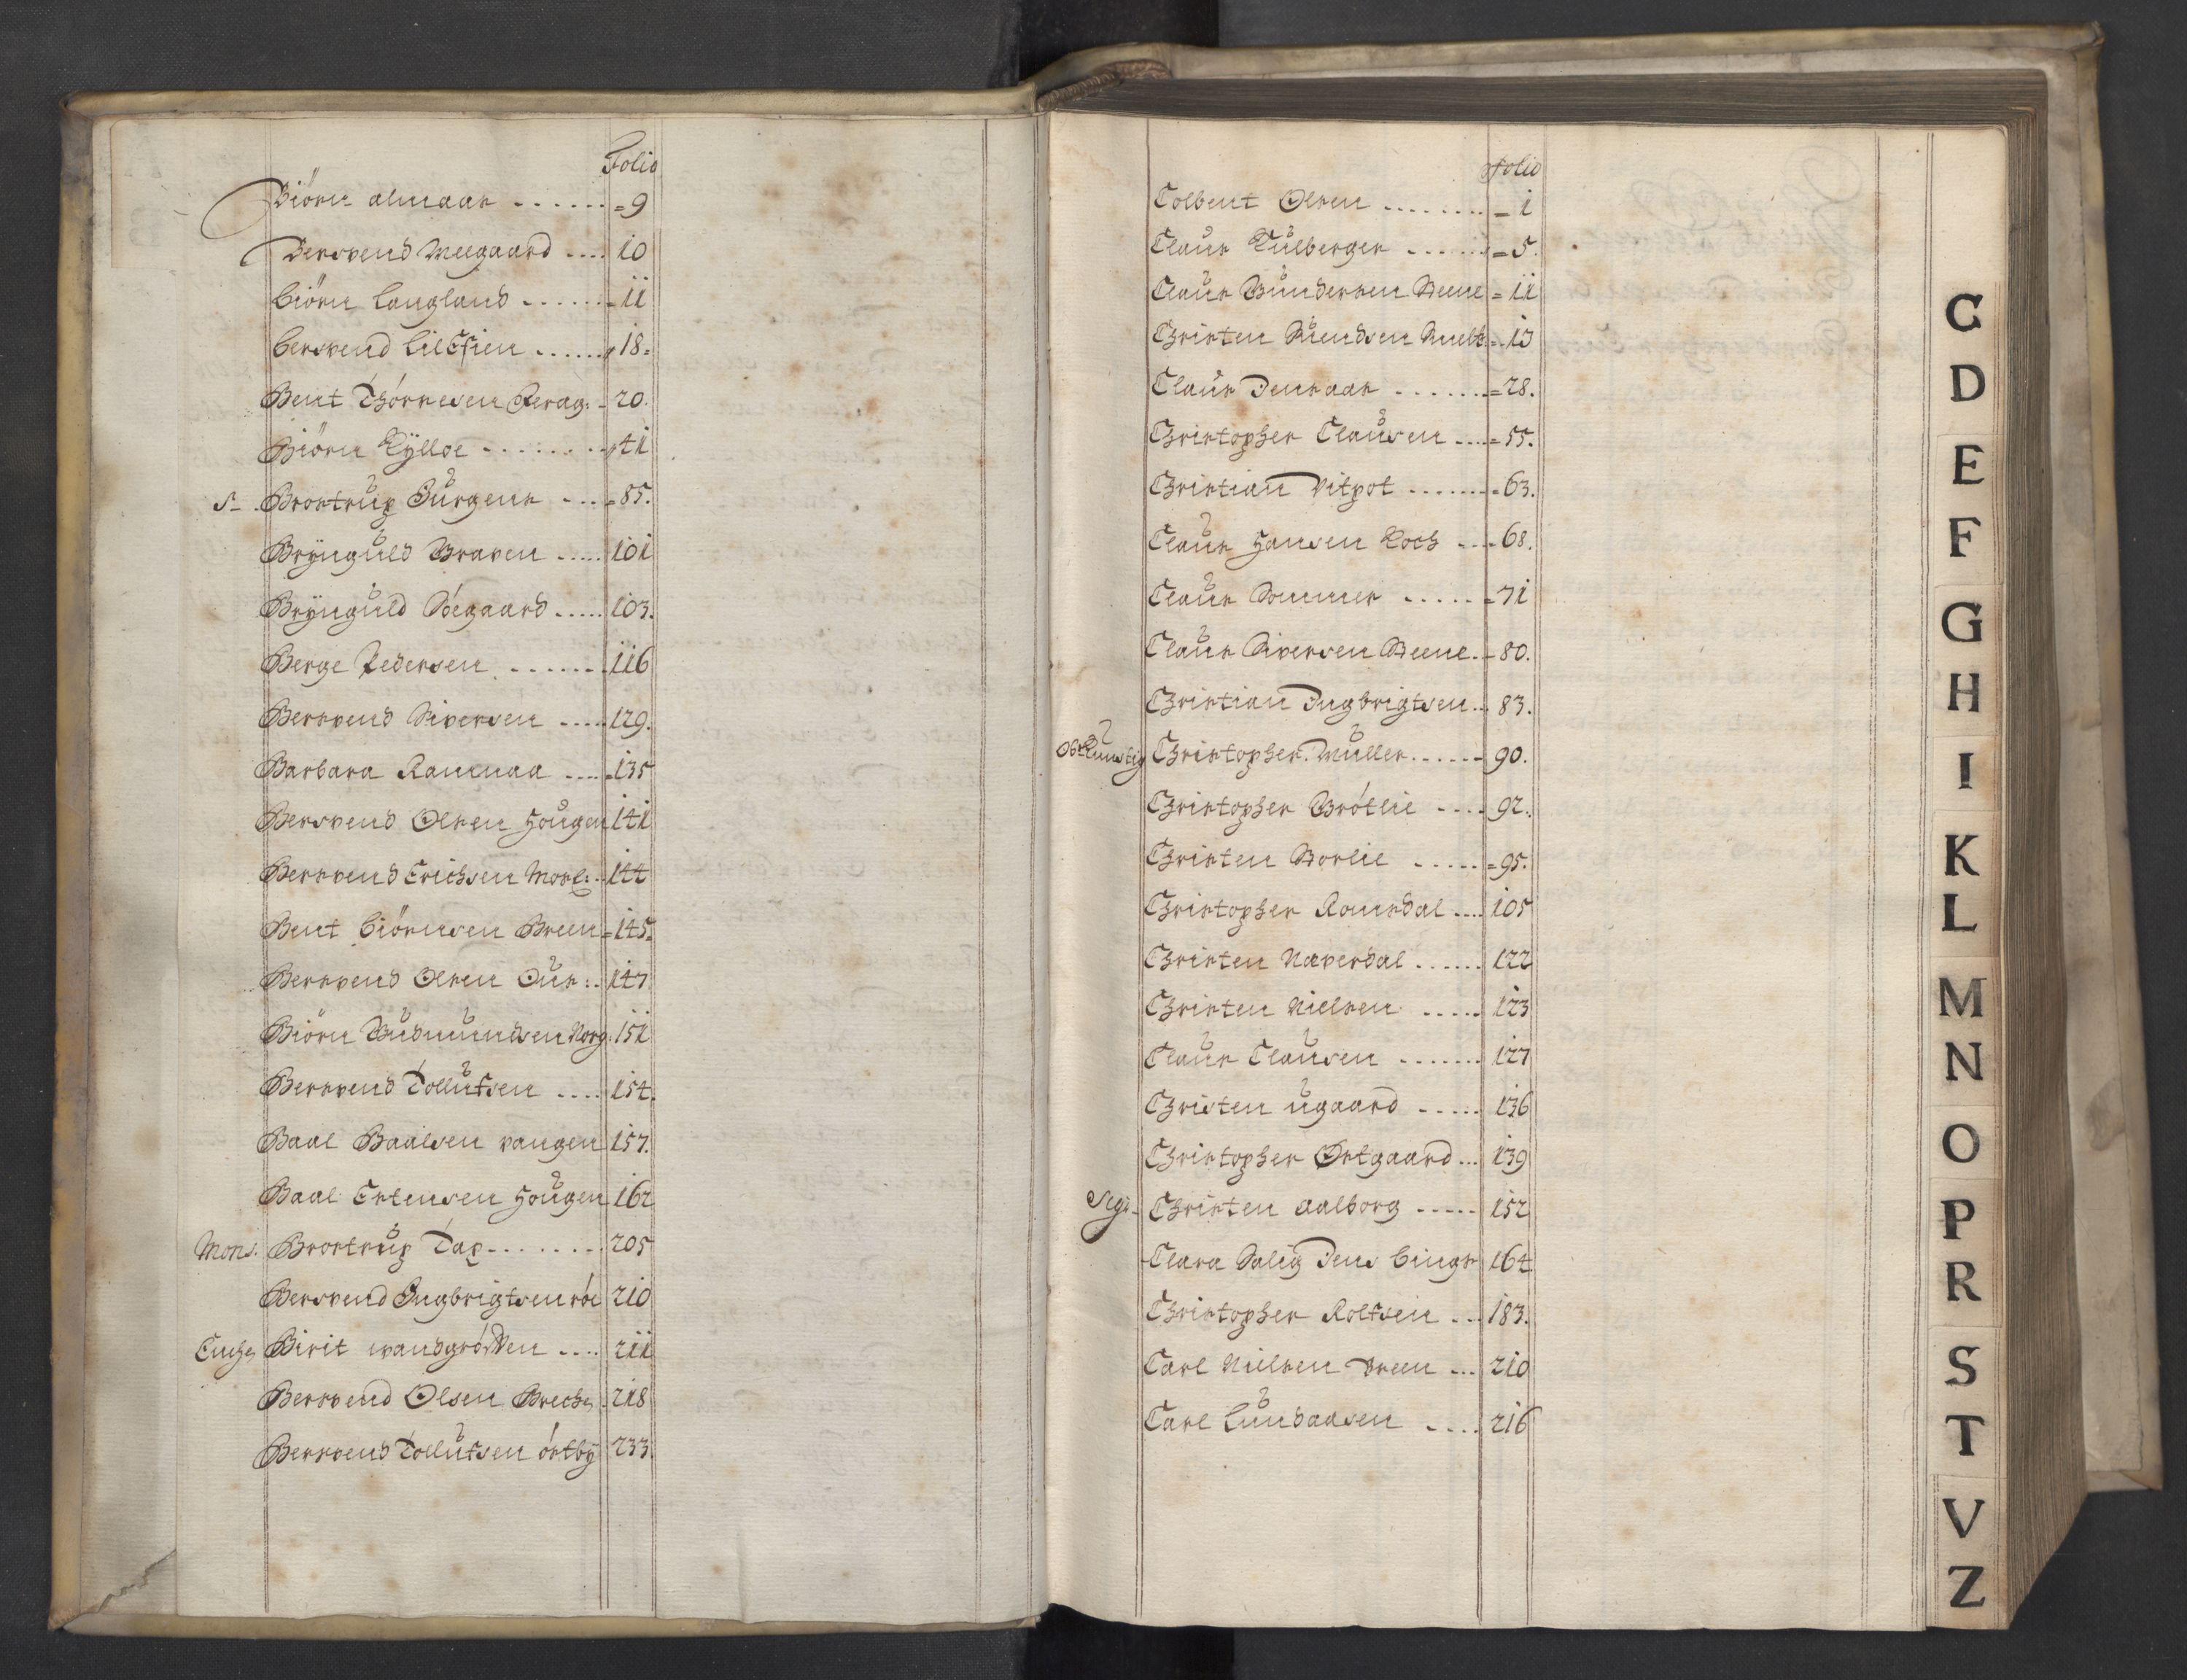 Folio
Biörn almaas ...... =9
Bersvend Meegaard .... 10
Biörn Langland ...... =11
Bersvend Lilefien ...... 18=
Bent Thórresen Ferag: =20.
Biörn Kÿlloe ........ 41
S- Brostrup Bürgens .... =85.
Brÿnguld Braven ..... 101
Brÿnguld Sóegaard ..... 103.
Berge Pedersen ...... 116
Bersvend Siversen ..... 129.
Barbara Ramnaa .... =135
Bersvend Olsen Hougen 141
Bersvend Erichsen Mosl: .. 144
Bent Biörnsen Breen =145=
Bersvend Olsen Ous: .. 147
Biörn Gudmundsen Norg. 151
Bersvend Tollufsen .... 154.
Baal Baalsen vangen 157.
Baal Estensen Hougen 162
Mons. Brostrup Dax ........ 205
Bersvend Ingbrigtsen röe 210
Birit .... 211
Bersvend Olsen 218
Bersvend Tollufsen óstbÿ 233.
Folio
Colbent Olsen ........ =1
Claus Külberger ...... =5.
Claus Gundersen Steene =11
Christen =13
Claus Jensaas ....... =28.
Christopher Clausen .... =55.
Christian Vitpot ....... =63.
Claus Hansen Koch ... =68.
Claus Sommer ...... =71
Claus Siversen Steene .. =80.
Christian Ingbrigtsen ... 83.
Christopher Müller ...... 90.
Christopher Brótlie .... 92.
Christen Borlie ..... =95.
Christopher Romsdal .... 105
Christen Naverdal ...... 122
Christen Nielsen ..... 123
Claus Clausen ....... 127
Christen ugaard ..... 136
Christopher Ostgaard ... 139
Sigr- Christen aalborg ..... 152
Clara Salig Jens Bings 164
Christopher Rolfsen ... 183.
Carl Nielsen Breen ... 210
Carl Lundaasen .... 216
C
D
E
F
G
H
I
K
L
M
N
O
P
R
S
T
V
Z